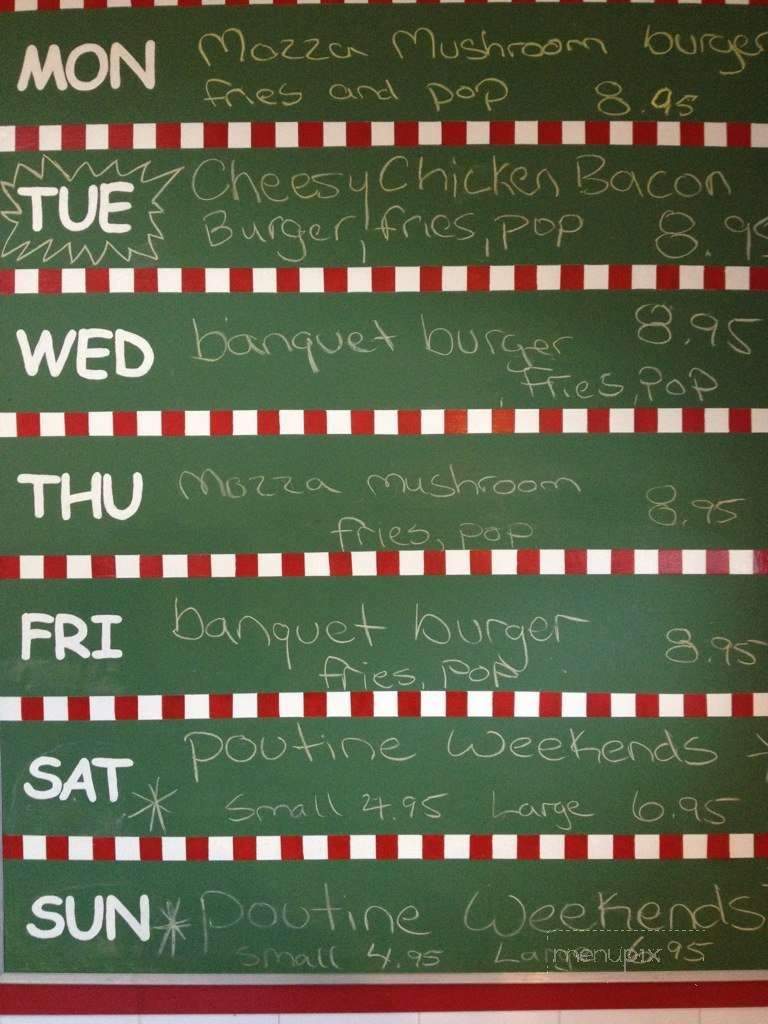 MON Mozza Mushroom burger
fries and pop 8.95
TUE Cheesy Chicken Bacon
Burger, fries, pop 8.95
WED banquet burger 8.95
fries, pop
THU Mozza mushroom 8.95
fries, pop
FRI banquet burger 8.95
fries, pop
SAT Poutine Weekends
* Small 4.95 Large 6.95
SUN * Poutine Weekends
Small 4.95 Large 6.95
menupix